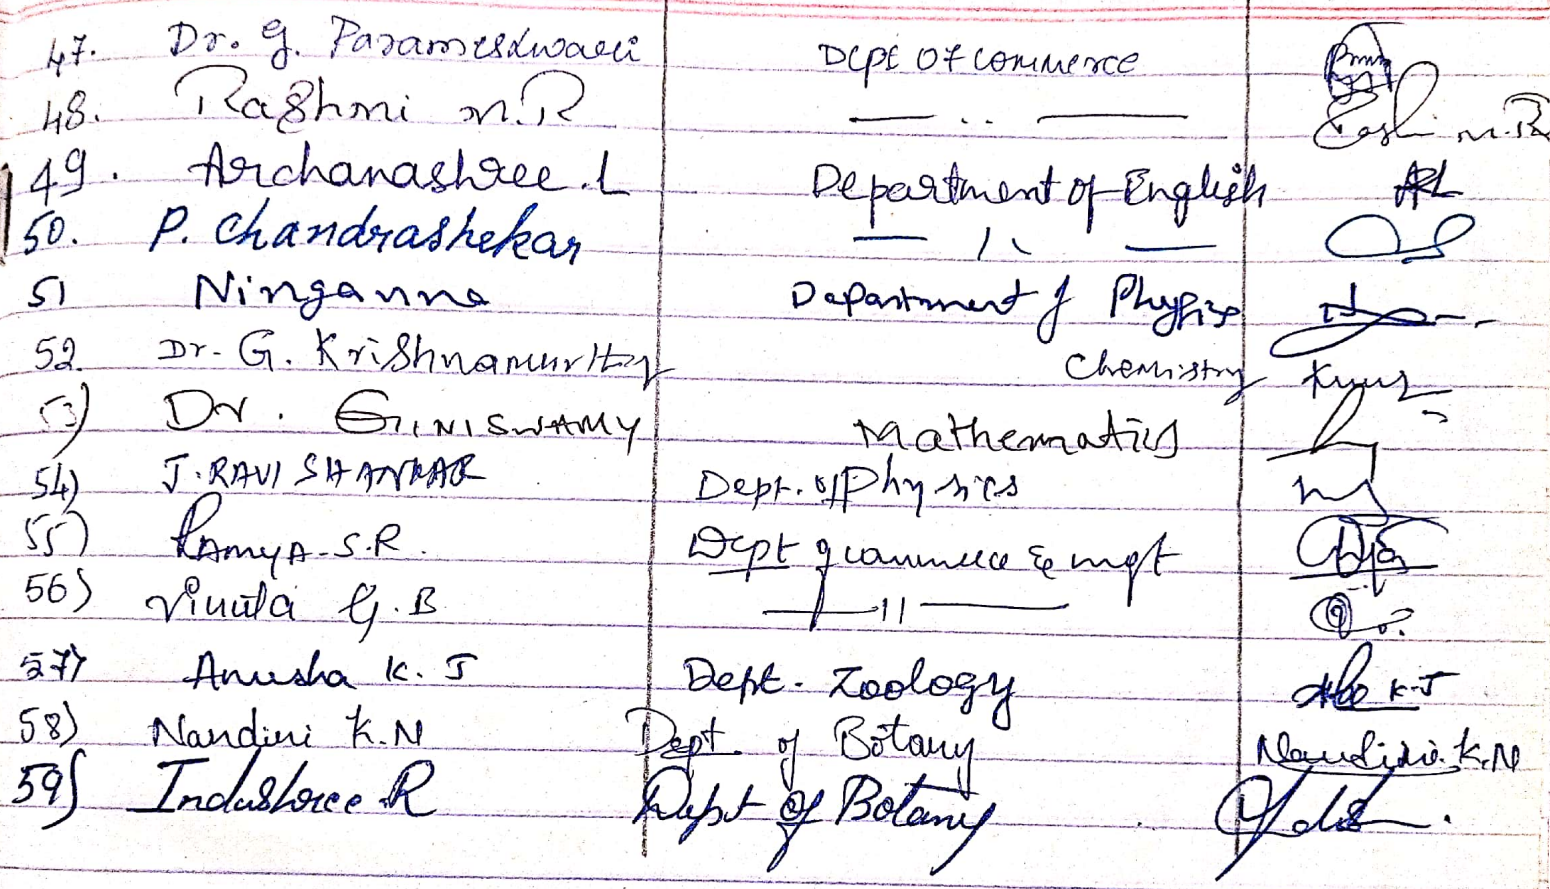 47. Dr. G. Parameshwari Dept Of commerce
48. Rashmi M.R — .. — Rashmi M.R
49. Archanashree.L Department of English AL
50. P. Chandrashekar — 11 —
51 Ninganna Department of Physics
52. Dr. G. Krishnamurthy Chemistry
53) Dr. GINISWAMY Mathematics
54) J. RAVI SHANKAR Dept. of Physics
55) RAMYA-S.R. Dept of commerce & mgt
56) Vinuta G.B — 11 —
57) Anusha K.J Dept. Zoology K.J
58) Nandini K.N Dept. of Botany Nandini.K.N
59) Indushree R Dept of Botany